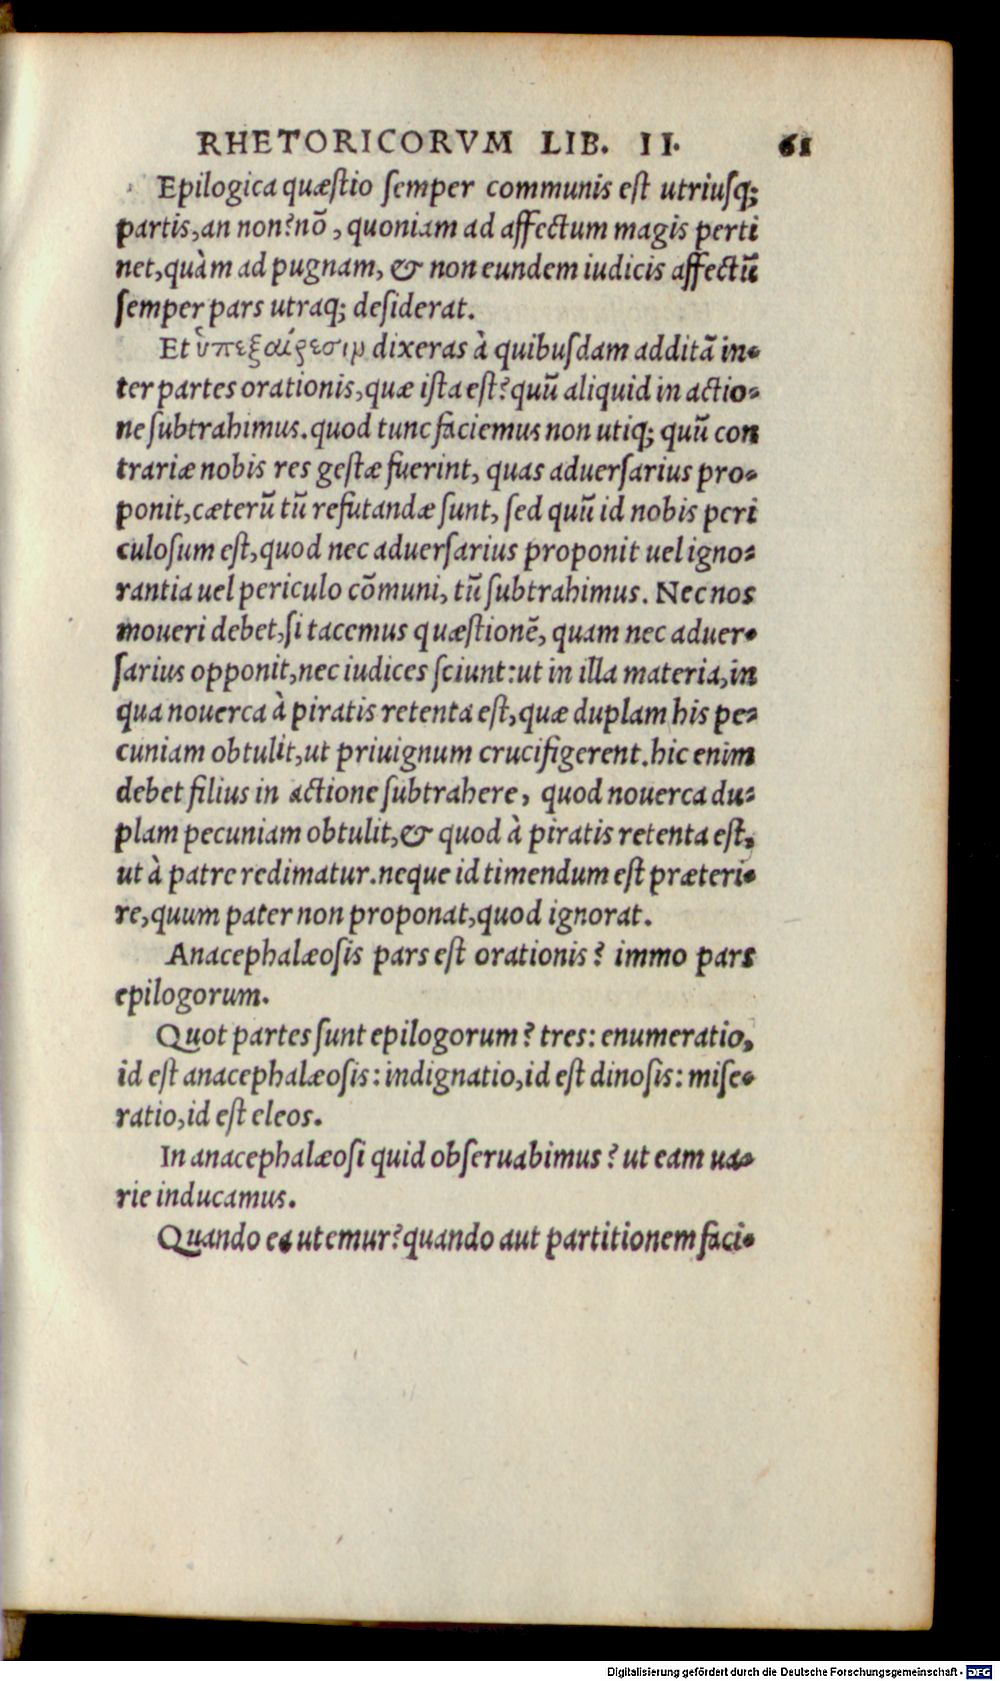 RHETORICORVM LIB. II. 61
Epilogica quæstio semper communis est utriusq;
partis, an non? nō, quoniam ad affectum magis perti
net, quàm ad pugnam, & non eundem iudicis affectū
semper pars utraq; desiderat.
Et ὑπεξαίρεσιν dixeras à quibusdam additā in-
ter partes orationis, quæ ista est? quū aliquid in actio-
ne subtrahimus. quod tunc faciemus non utiq; quū con
trariæ nobis res gestæ fuerint, quas aduersarius pro-
ponit, cæterū tū refutandæ sunt, sed quū id nobis peri
culosum est, quod nec aduersarius proponit uel igno-
rantia uel periculo cōmuni, tū subtrahimus. Nec nos
moueri debet, si tacemus quæstionē, quam nec aduer-
sarius opponit, nec iudices sciunt: ut in illa materia, in
qua nouerca à piratis retenta est, quæ duplam his pe-
cuniam obtulit, ut priuignum crucifigerent. hic enim
debet filius in actione subtrahere, quod nouerca du-
plam pecuniam obtulit, & quod à piratis retenta est,
ut à patre redimatur. neque id timendum est præteri-
re, quum pater non proponat, quod ignorat.
Anacephalæosis pars est orationis? immo pars
epilogorum.
Quot partes sunt epilogorum? tres: enumeratio,
id est anacephalæosis: indignatio, id est dinosis: mise-
ratio, id est eleos.
In anacephalæosi quid obseruabimus? ut eam ua-
rie inducamus.
Quando ea utemur? quando aut partitionem faci-
Digitalisierung gefördert durch die Deutsche Forschungsgemeinschaft - DFG